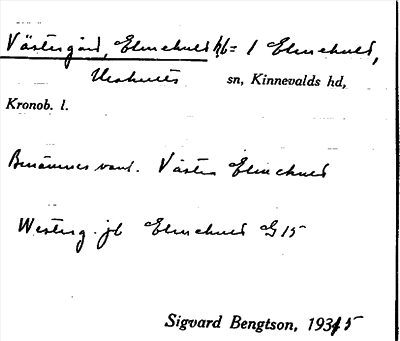 Västergård, Elmehult hb= 1 Elmehult,
sn, Kinnevalds hd,
Kronob. l.
Benämnes vanl. Västra Elmehult
Westerg. jb Elmehult G 15
Sigvard Bengtson, 1935